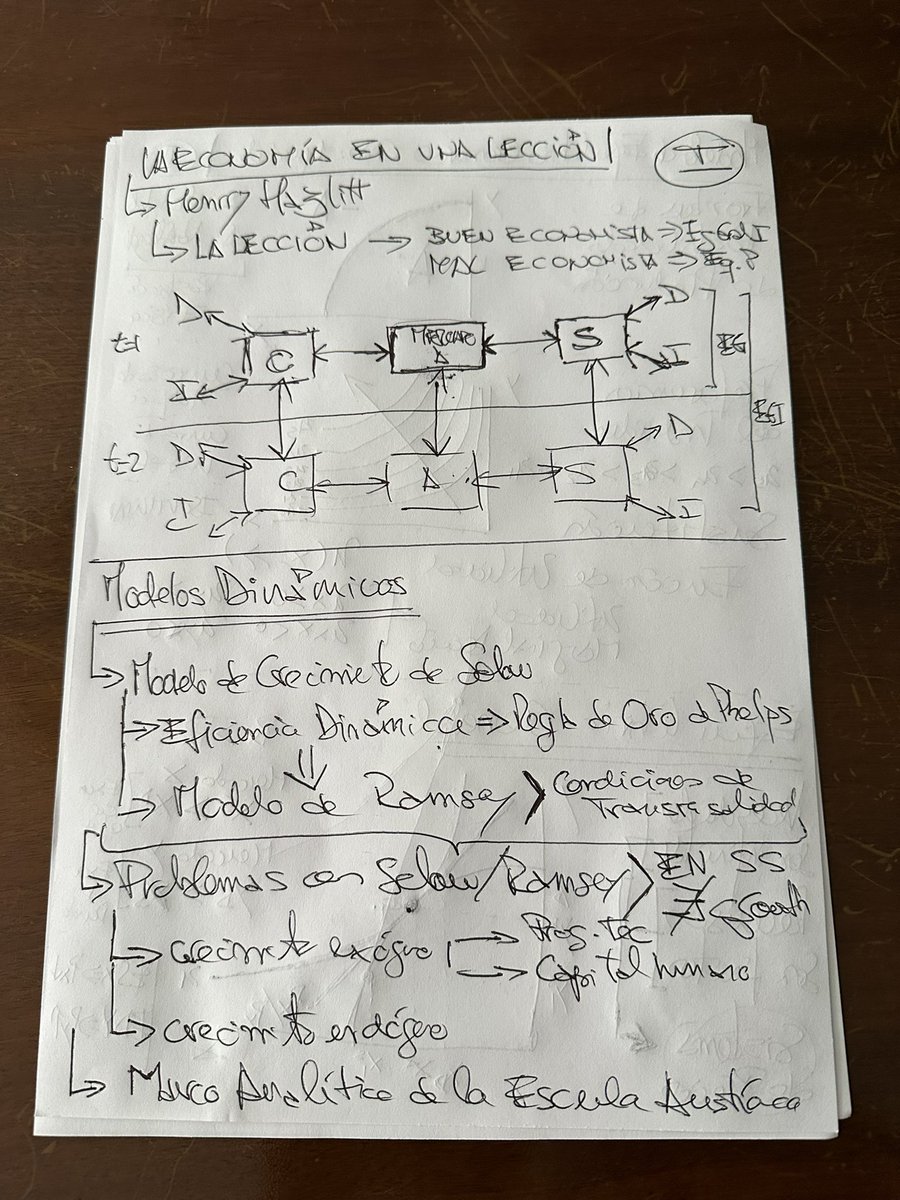 LA ECONOMÍA EN UNA LECCIÓN I
↳ Henry Hazlitt
↳ LA LECCIÓN → BUEN ECONOMISTA ⇒ Eq GralI
MAL ECONOMISTA ⇒ Eq. P
t=1 D I C MERCADO A S D I EG
EGI
t=2 D I C A S D I
Modelos Dinámicos
↳ Modelo de Crecimiento de Solow
→ Eficiencia Dinámica ⇒ Regla de Oro de Phelps
⇓
→ Modelo de Ramsey > Condiciones de
Transversalidad
↳ Problemas con Solow/Ramsey > EN SS
∄ growth
→ crecimiento exógeno → Prog. Tec
→ Capital humano
→ crecimiento endógeno
↳ Marco Analítico de la Escuela Austríaca